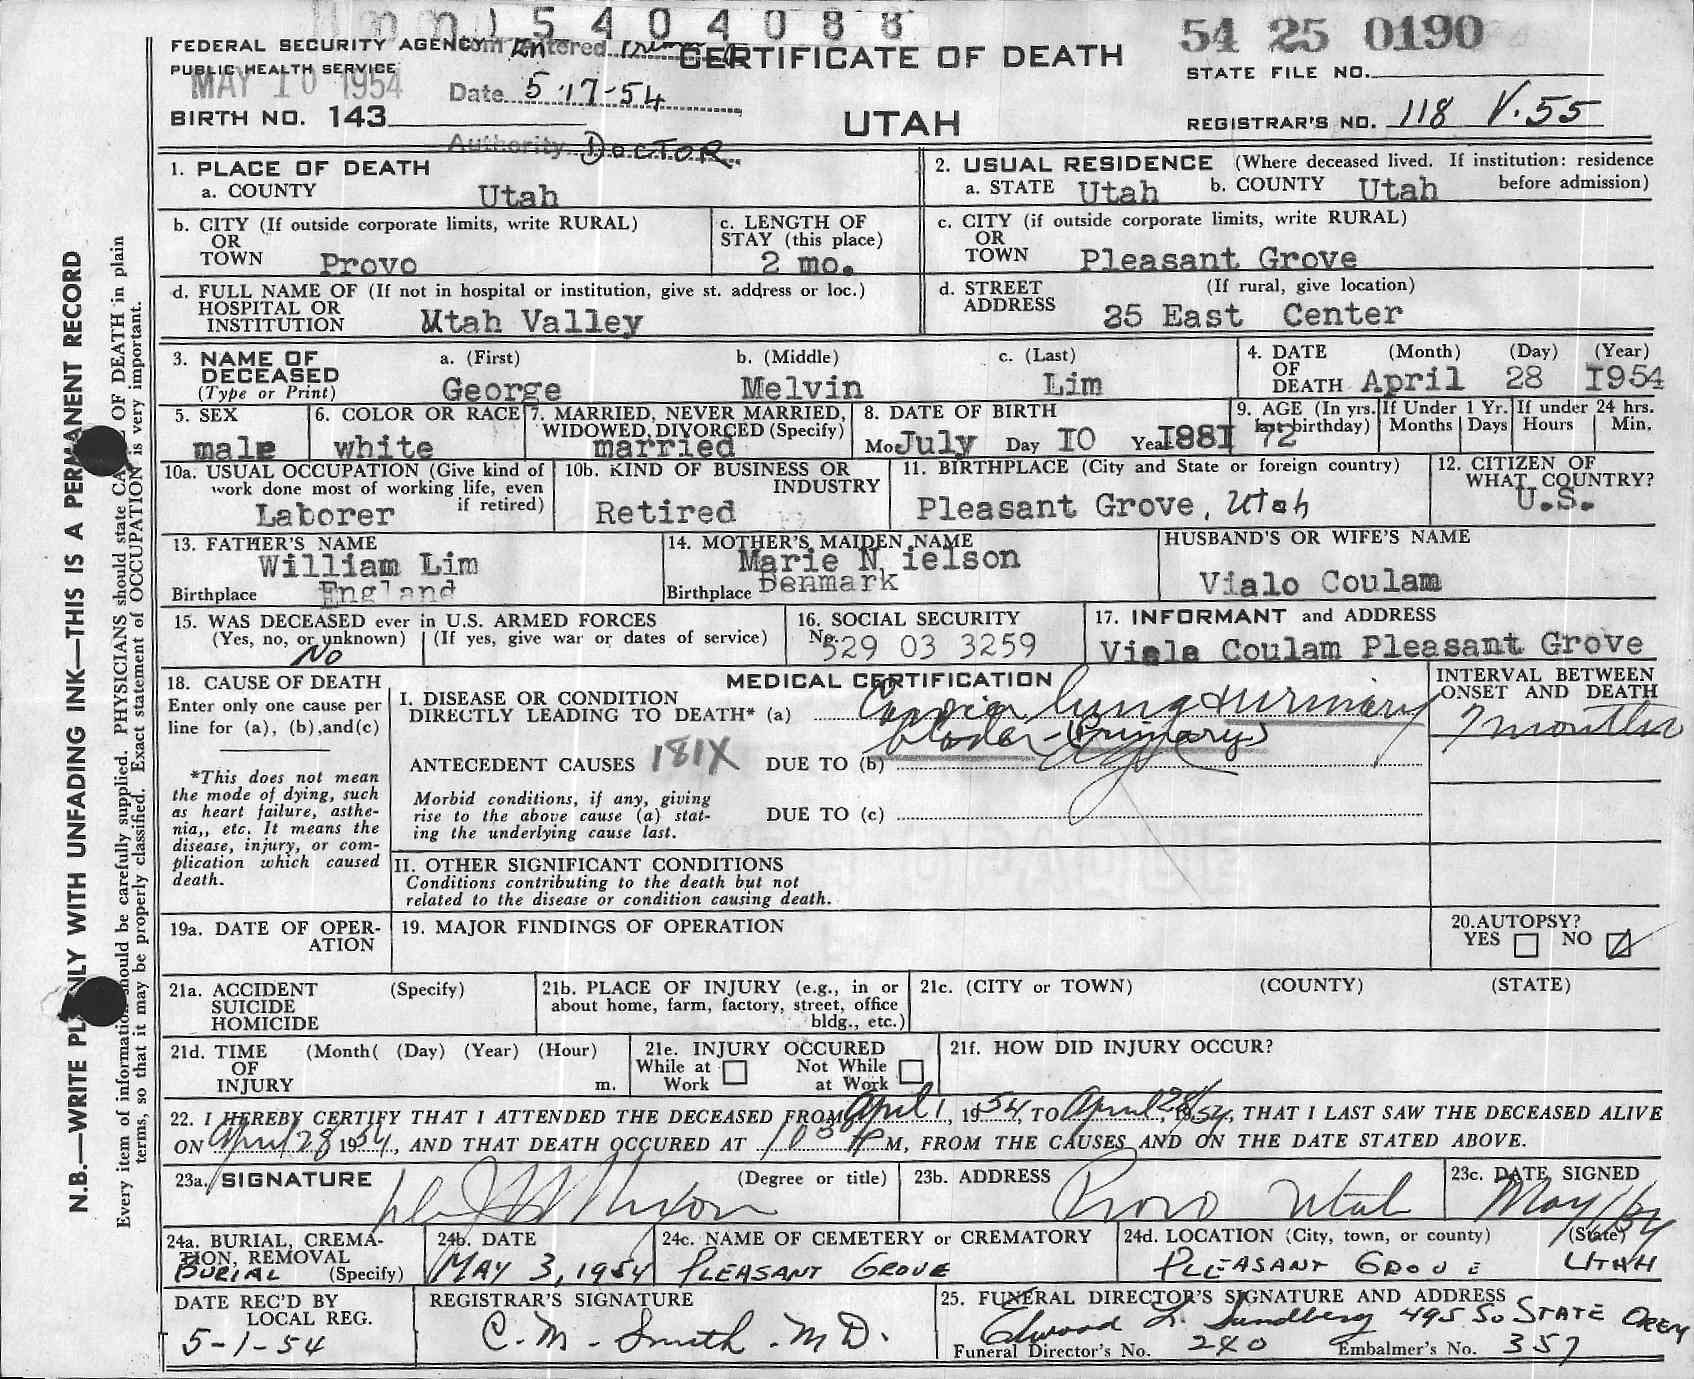 5 4 0 4 0 8 8
54 25 0190
FEDERAL SECURITY AGENCY
PUBLIC HEALTH SERVICE
MAY 10 1954
Entered
Date 5-17-54
Authority DOCTOR
CERTIFICATE OF DEATH
UTAH
STATE FILE NO.
BIRTH NO. 143
REGISTRAR'S NO. 118 V.55
1. PLACE OF DEATH
a. COUNTY Utah
2. USUAL RESIDENCE (Where deceased lived. If institution: residence before admission)
a. STATE Utah b. COUNTY Utah
b. CITY (If outside corporate limits, write RURAL)
OR
TOWN Provo
c. LENGTH OF
STAY (this place)
2 mo.
c. CITY (if outside corporate limits, write RURAL)
OR
TOWN Pleasant Grove
d. FULL NAME OF (If not in hospital or institution, give st. address or loc.)
HOSPITAL OR
INSTITUTION Mtah Valley
d. STREET (If rural, give location)
ADDRESS 25 East Center
3. NAME OF
DECEASED
(Type or Print)
a. (First) b. (Middle) c. (Last)
George Melvin Lim
4. DATE (Month) (Day) (Year)
OF
DEATH April 28 I954
5. SEX
male
6. COLOR OR RACE
white
7. MARRIED, NEVER MARRIED,
WIDOWED, DIVORCED (Specify)
married
8. DATE OF BIRTH
Mo July Day IO Yea I88I
9. AGE (In yrs.
last birthday)
72
If Under 1 Yr.
Months Days
If under 24 hrs.
Hours Min.
10a. USUAL OCCUPATION (Give kind of
work done most of working life, even
if retired)
Laborer
10b. KIND OF BUSINESS OR
INDUSTRY
Retired
11. BIRTHPLACE (City and State or foreign country)
Pleasant Grove, Utah
12. CITIZEN OF
WHAT COUNTRY?
U.S.
13. FATHER'S NAME
William Lim
Birthplace England
14. MOTHER'S MAIDEN NAME
Marie N ielson
Birthplace Denmark
HUSBAND'S OR WIFE'S NAME
Vialo Coulam
15. WAS DECEASED ever in U.S. ARMED FORCES
(Yes, no, or unknown) (If yes, give war or dates of service)
No
16. SOCIAL SECURITY
No. 529 03 3259
17. INFORMANT and ADDRESS
Viala Coulam Pleasant Grove
18. CAUSE OF DEATH
Enter only one cause per
line for (a), (b), and (c)
*This does not mean
the mode of dying, such
as heart failure, asthe-
nia,, etc. It means the
disease, injury, or com-
plication which caused
death.
MEDICAL CERTIFICATION
I. DISEASE OR CONDITION
DIRECTLY LEADING TO DEATH* (a) lung & urinary
bladder - (Primary)
INTERVAL BETWEEN
ONSET AND DEATH
7 months
ANTECEDENT CAUSES 181X DUE TO (b)
Morbid conditions, if any, giving
rise to the above cause (a) stat-
ing the underlying cause last.
DUE TO (c)
II. OTHER SIGNIFICANT CONDITIONS
Conditions contributing to the death but not
related to the disease or condition causing death.
19a. DATE OF OPER-
ATION
19. MAJOR FINDINGS OF OPERATION
20. AUTOPSY?
YES NO
21a. ACCIDENT (Specify)
SUICIDE
HOMICIDE
21b. PLACE OF INJURY (e.g., in or
about home, farm, factory, street, office
bldg., etc.)
21c. (CITY or TOWN) (COUNTY) (STATE)
21d. TIME (Month( (Day) (Year) (Hour)
OF
INJURY m.
21e. INJURY OCCURED
While at Not While
Work at Work
21f. HOW DID INJURY OCCUR?
22. I HEREBY CERTIFY THAT I ATTENDED THE DECEASED FROM April 1, 1954, TO April 28, 1954, THAT I LAST SAW THE DECEASED ALIVE
ON April 28 1954, AND THAT DEATH OCCURED AT P M, FROM THE CAUSES AND ON THE DATE STATED ABOVE.
23a. SIGNATURE (Degree or title)
23b. ADDRESS
Provo Utah
23c. DATE SIGNED
May 1/54
24a. BURIAL, CREMA-
TION, REMOVAL
(Specify)
BURIAL
24b. DATE
MAY 3, 1954
24c. NAME OF CEMETERY or CREMATORY
PLEASANT GROVE
24d. LOCATION (City, town, or county) (State)
PLEASANT GROVE UTAH
DATE REC'D BY
LOCAL REG.
5-1-54
REGISTRAR'S SIGNATURE
C. M. Smith. M D.
25. FUNERAL DIRECTOR'S SIGNATURE AND ADDRESS
Elwood L. Sundberg 495 So STATE OREM
Funeral Director's No. 240 Embalmer's No. 357
N.B.—WRITE PLAINLY WITH UNFADING INK—THIS IS A PERMANENT RECORD
Every item of information should be carefully supplied. PHYSICIANS should state CAUSE OF DEATH in plain
terms, so that it may be properly classified. Exact statement of OCCUPATION is very important.